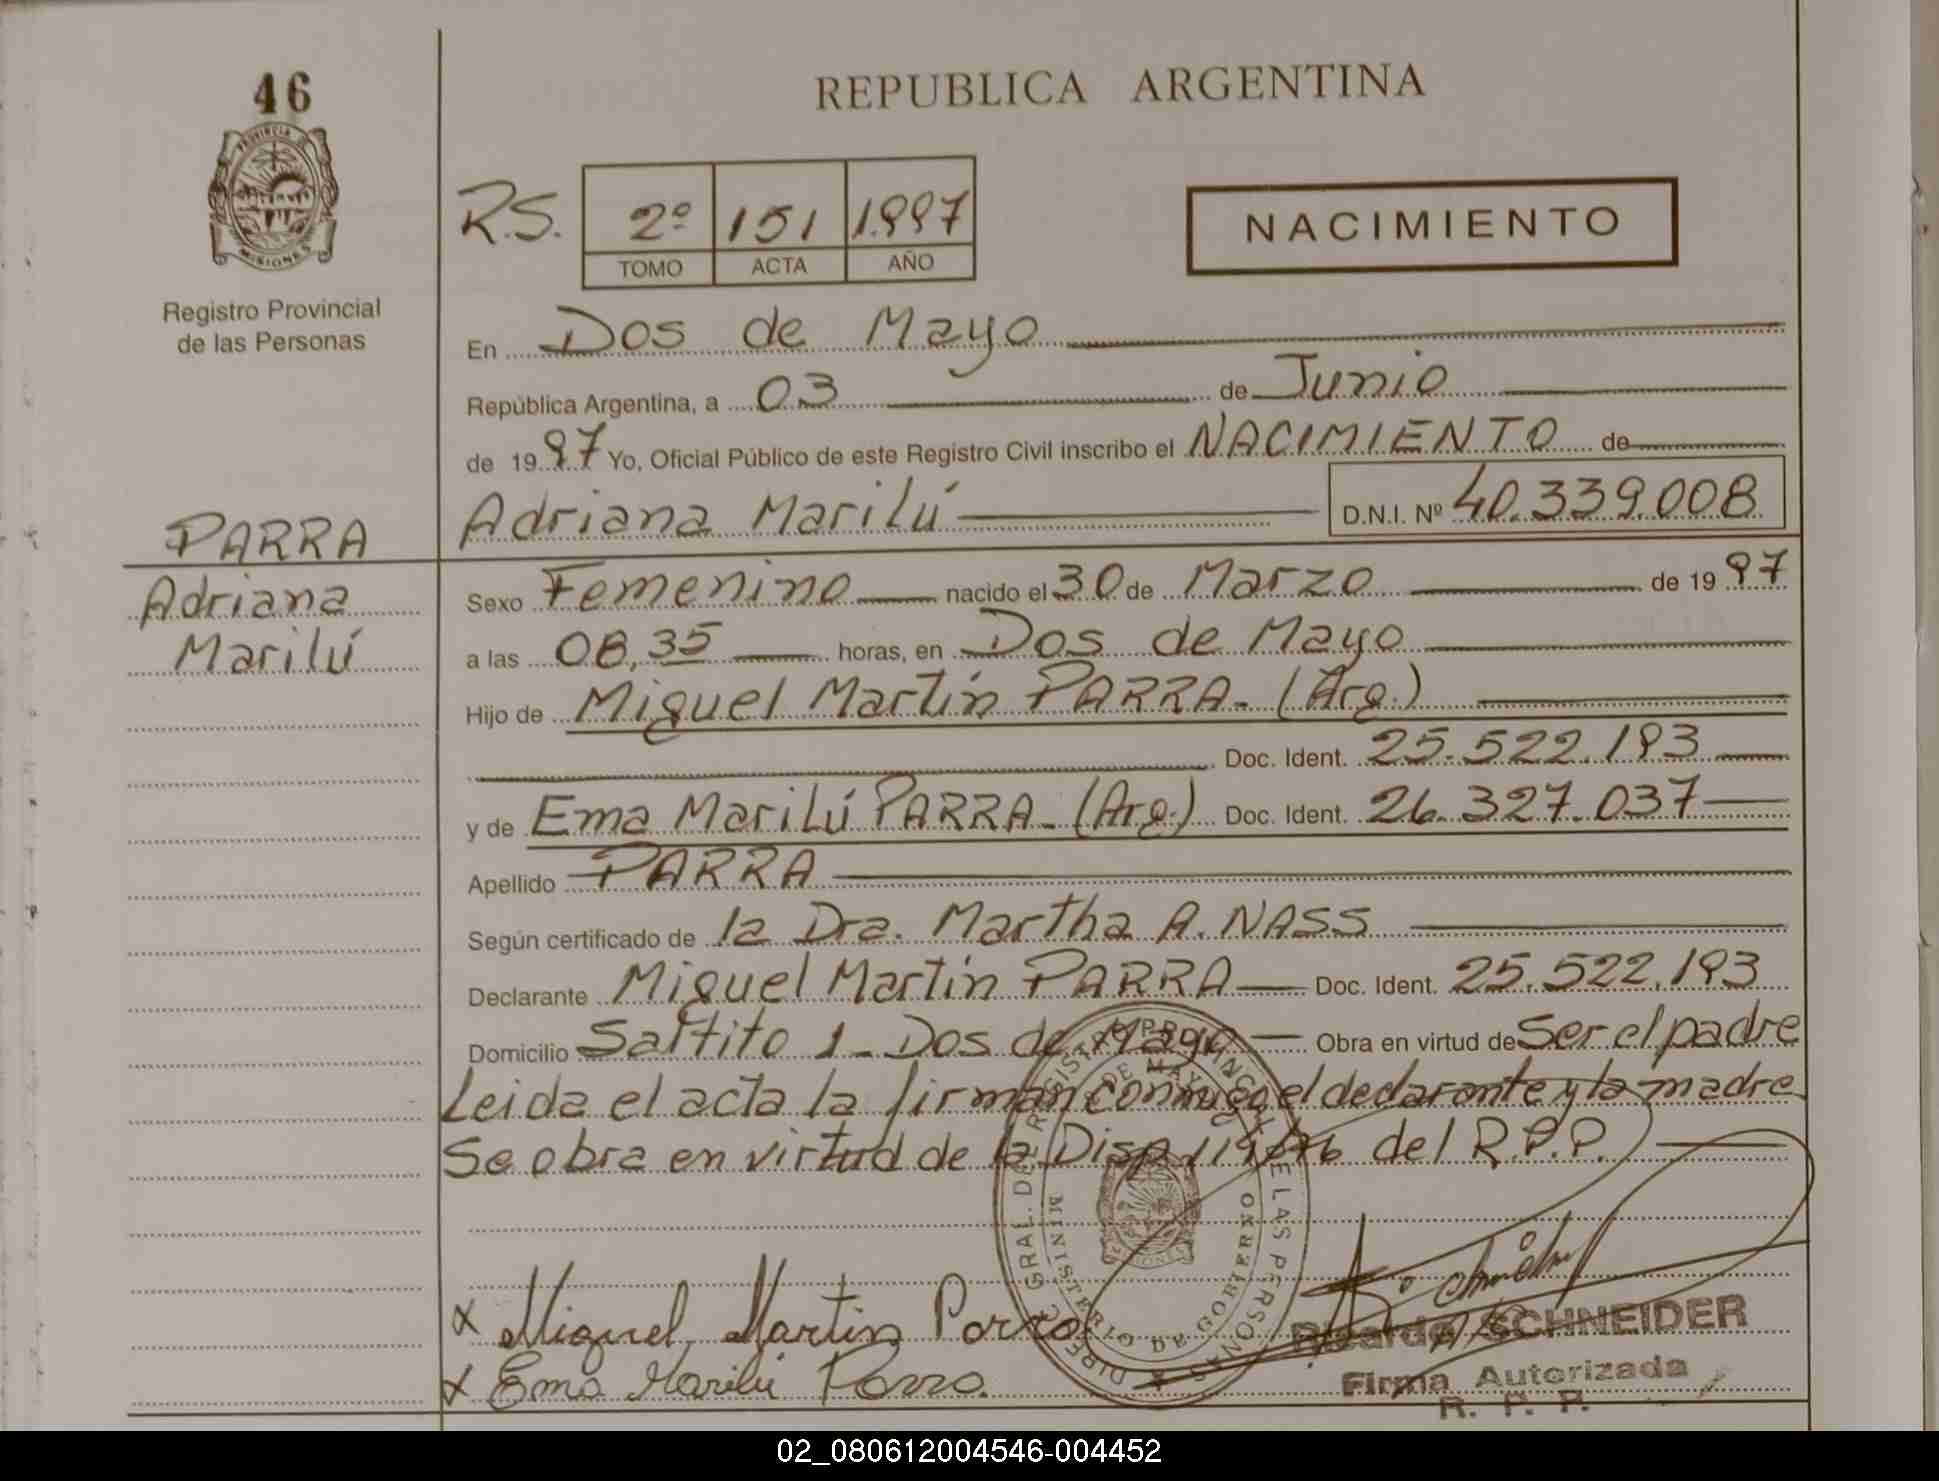 46
PROVINCIA
MISIONES
Registro Provincial
de las Personas
PARRA
Adriana
Marilú
REPUBLICA ARGENTINA
R.S.
2º 151 1.997
TOMO ACTA AÑO
NACIMIENTO
En Dos de Mayo
República Argentina, a 03 de Junio
de 1997 Yo, Oficial Público de este Registro Civil inscribo el NACIMIENTO de
Adriana Marilú D.N.I. Nº 40.339.008
Sexo Femenino nacido el 30 de Marzo de 1997
a las 08,35 horas, en Dos de Mayo
Hijo de Miguel Martín PARRA - (Arg.)
Doc. Ident. 25.522.193
y de Ema Marilú PARRA - (Arg.) Doc. Ident. 26.327.037
Apellido PARRA
Según certificado de la Dra. Martha A. NASS
Declarante Miguel Martín PARRA Doc. Ident. 25.522.193
Domicilio Saltito 1 - Dos de Mayo Obra en virtud de Ser el padre
Leida el acta la firman conmigo el declarante y la madre
Se obra en virtud de la Disp. del R.P.P.
DIREC. GRAL. DEL REGISTRO PROVINCIAL DE LAS PERSONAS
DE MAYO
MINISTERIO DE GOBIERNO
x Miguel Martin Parra
x Ema Marilú Parra
Ricardo SCHNEIDER
Firma Autorizada
R. P. P.
02_080612004546-004452